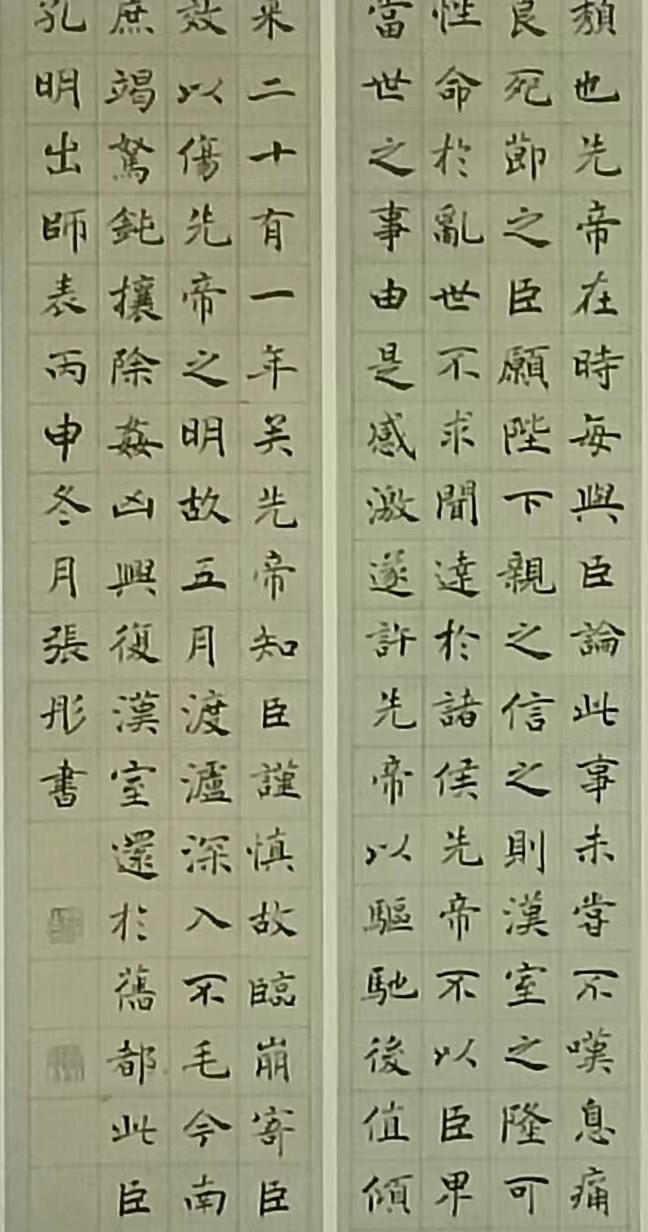 頹也先帝在時每與臣論此事未嘗不嘆息痛
良死節之臣願陛下親之信之則漢室之隆可
性命於亂世不求聞達於諸侯先帝不以臣卑
當世之事由是感激遂許先帝以驅馳後值傾
來二十有一年矣先帝知臣謹慎故臨崩寄臣
效以傷先帝之明故五月渡瀘深入不毛今南
庶竭駑鈍攘除姦凶興復漢室還於舊都此臣
孔明出師表丙申冬月張彤書